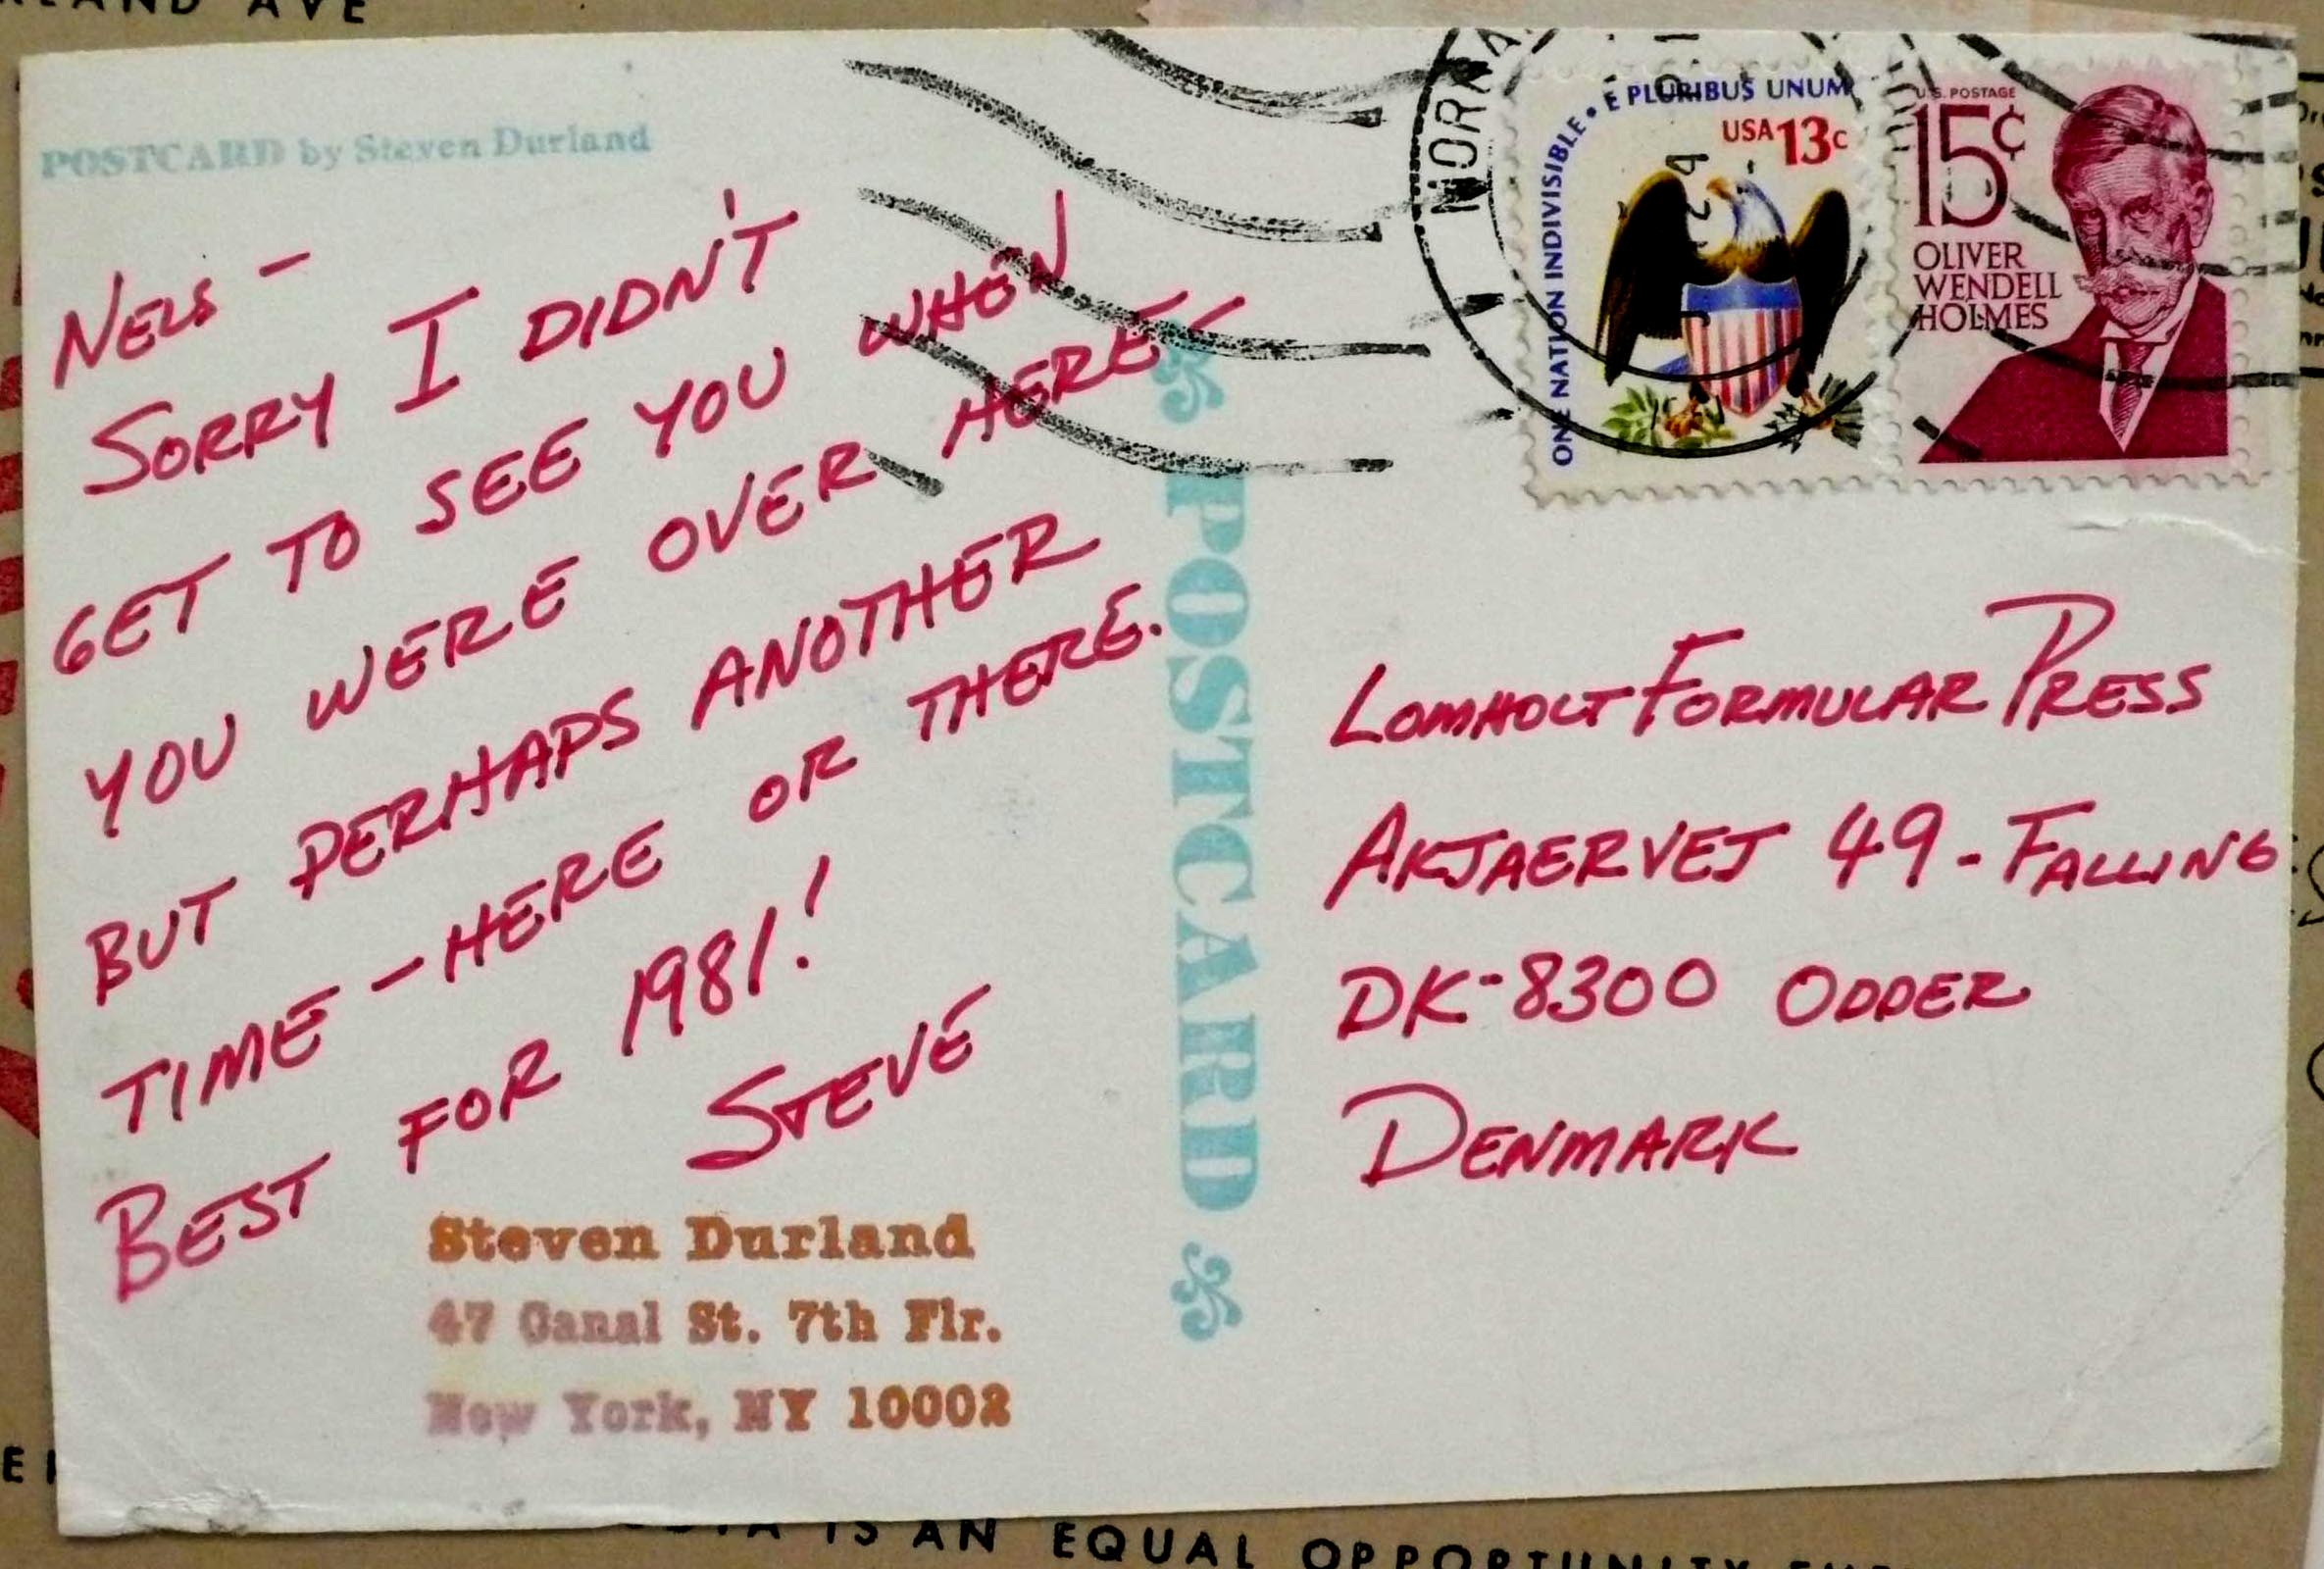 AVE
POSTCARD by Steven Durland
NELS –
SORRY I DIDN'T
GET TO SEE YOU WHEN
YOU WERE OVER HERE –
BUT PERHAPS ANOTHER
TIME – HERE OR THERE.
BEST FOR 1981!
STEVE
Steven Durland
47 Canal St. 7th Flr.
New York, NY 10002
POSTCARD
ONE NATION INDIVISIBLE • E PLURIBUS UNUM
USA 13c
U.S. POSTAGE
15¢
OLIVER
WENDELL
HOLMES
LOMHOLT FORMULAR PRESS
AKJAERVEJ 49 - FALLING
DK-8300 ODDER
DENMARK
IS AN EQUAL OPPORTUNITY